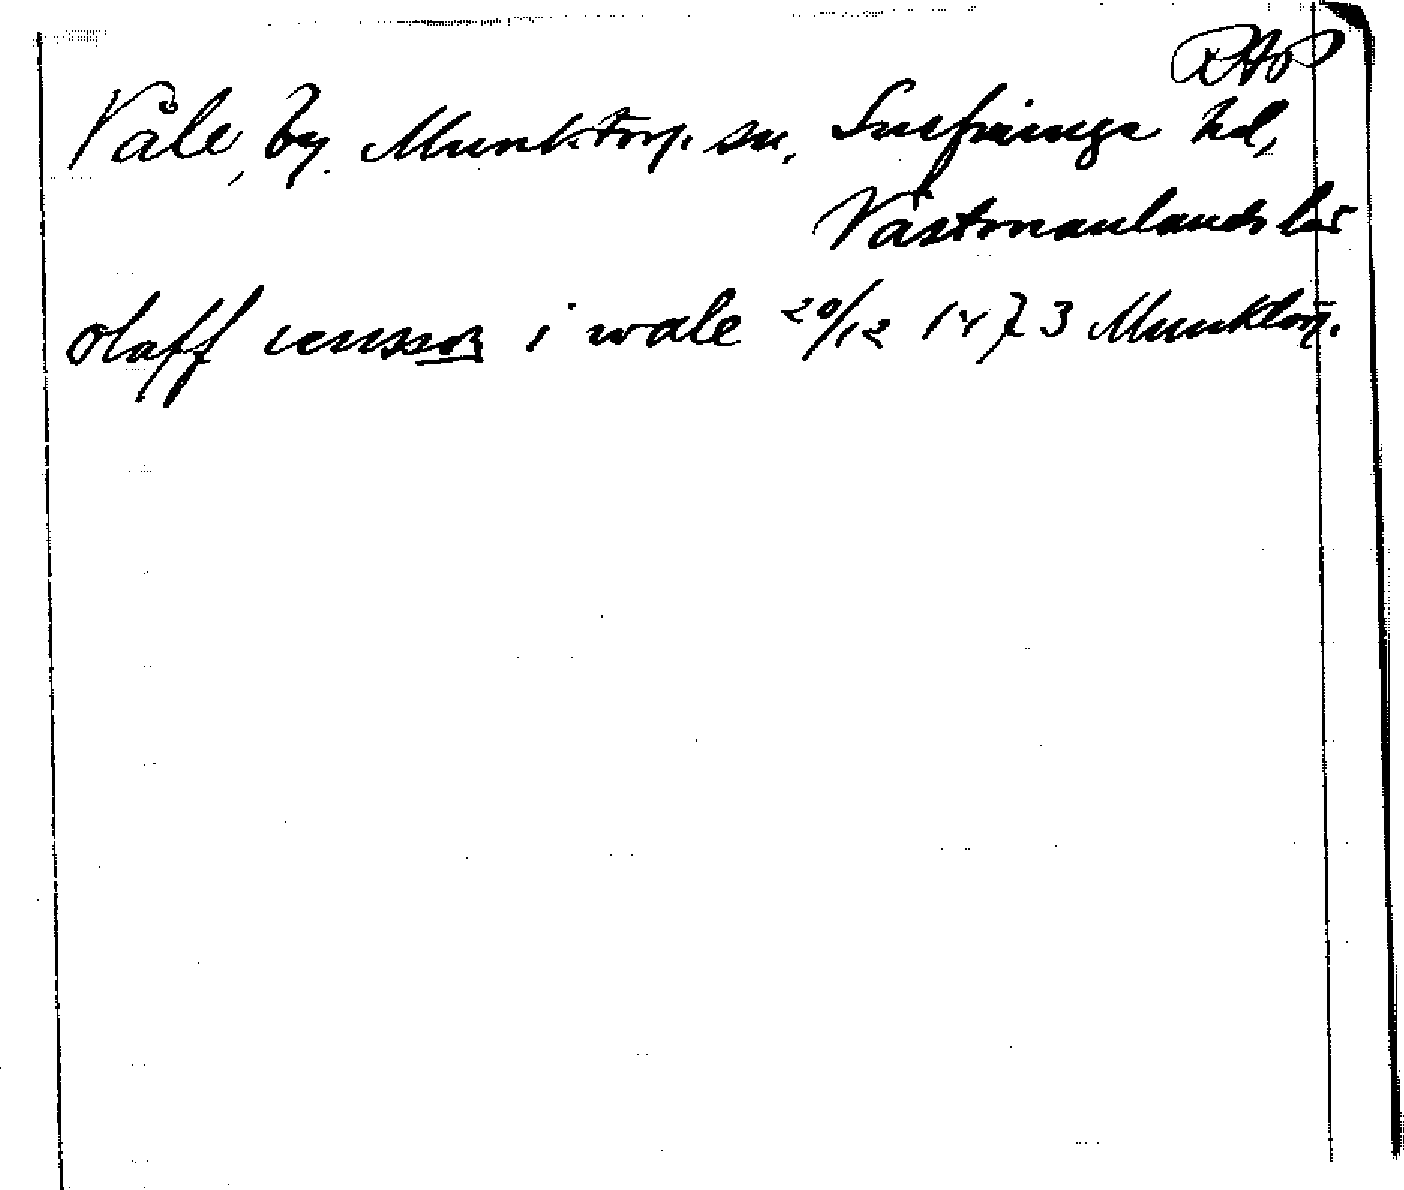 RAP
Våle, by. Munktorp. sn. Snefringe hd,
Västmanlands län
olaff ienssoṉ i wale 20/12 1473 Munktorp.